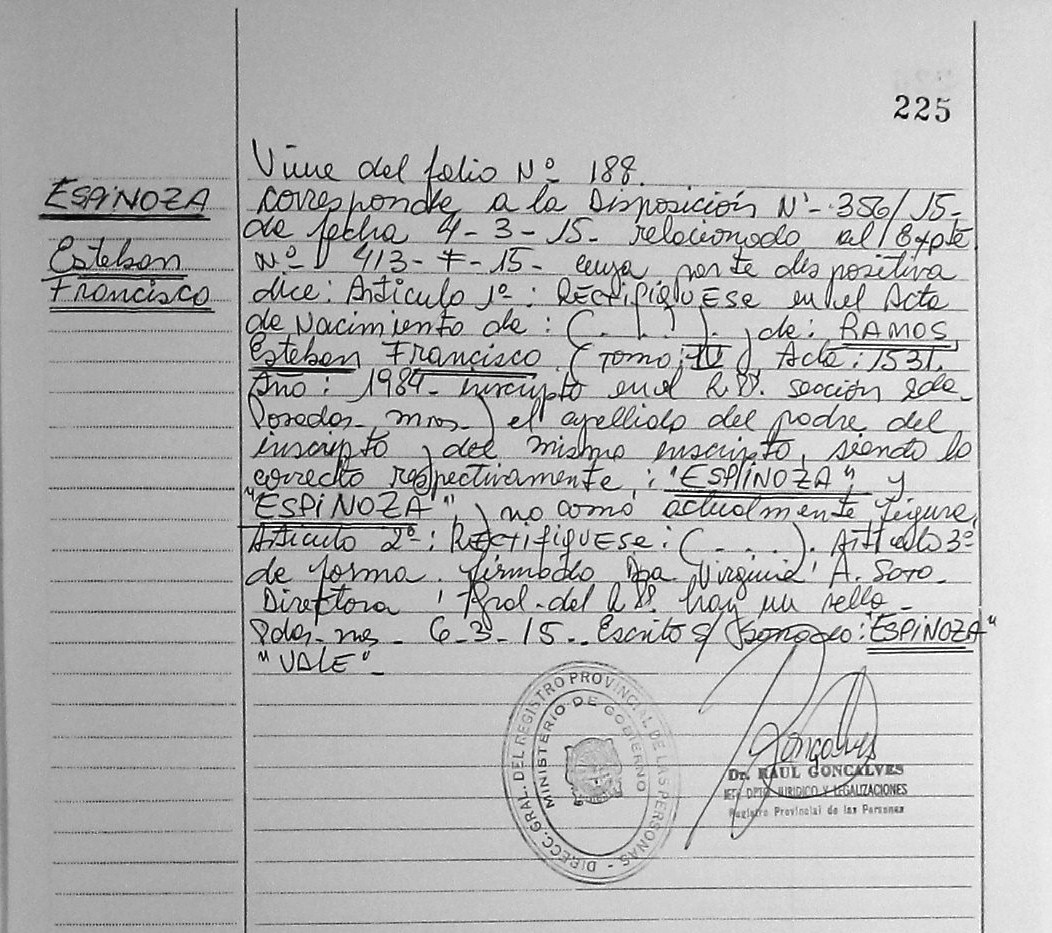 225
ESPINOZA
Esteban
Francisco
Viene del folio Nº 188.
corresponde a la Disposición Nº- 356/15-
de fecha 4-3-15- relacionado al Expte
Nº 413-F-15- cuya parte dispositiva
dice: Articulo 1º: RECtifiquESE en el Acta
de Nacimiento de: (...). de: RAMOS,
Esteban Francisco (Tomo: IV Acta: 1531.
Año: 1984- inscripto en el R.PP. sección 2da
Posadas mnes-) el apellido del padre del
inscripto y del mismo inscripto, siendo lo
correcto respectivamente: "ESPINOZA" y
"ESPINOZA", y no como actualmente figura.
Articulo 2º: RECtifiquESE: (...). Articulo 3º
de forma. firmado Dra. Virginia A. Soto-
Directora Gral. del R.PP. hay un sello-
Pdas-mnes- 6-3-15- Escrito s/ borrado: "ESPINOZA"
"VALE"-
DIRECC. GRAL. DEL REGISTRO PROVINCIAL DE LAS PERSONAS -
MINISTERIO DE GOBIERNO
Goncalves
Dr. RAUL GONCALVES
DPTO. JURIDICO Y LEGALIZACIONES
Registro Provincial de las Personas